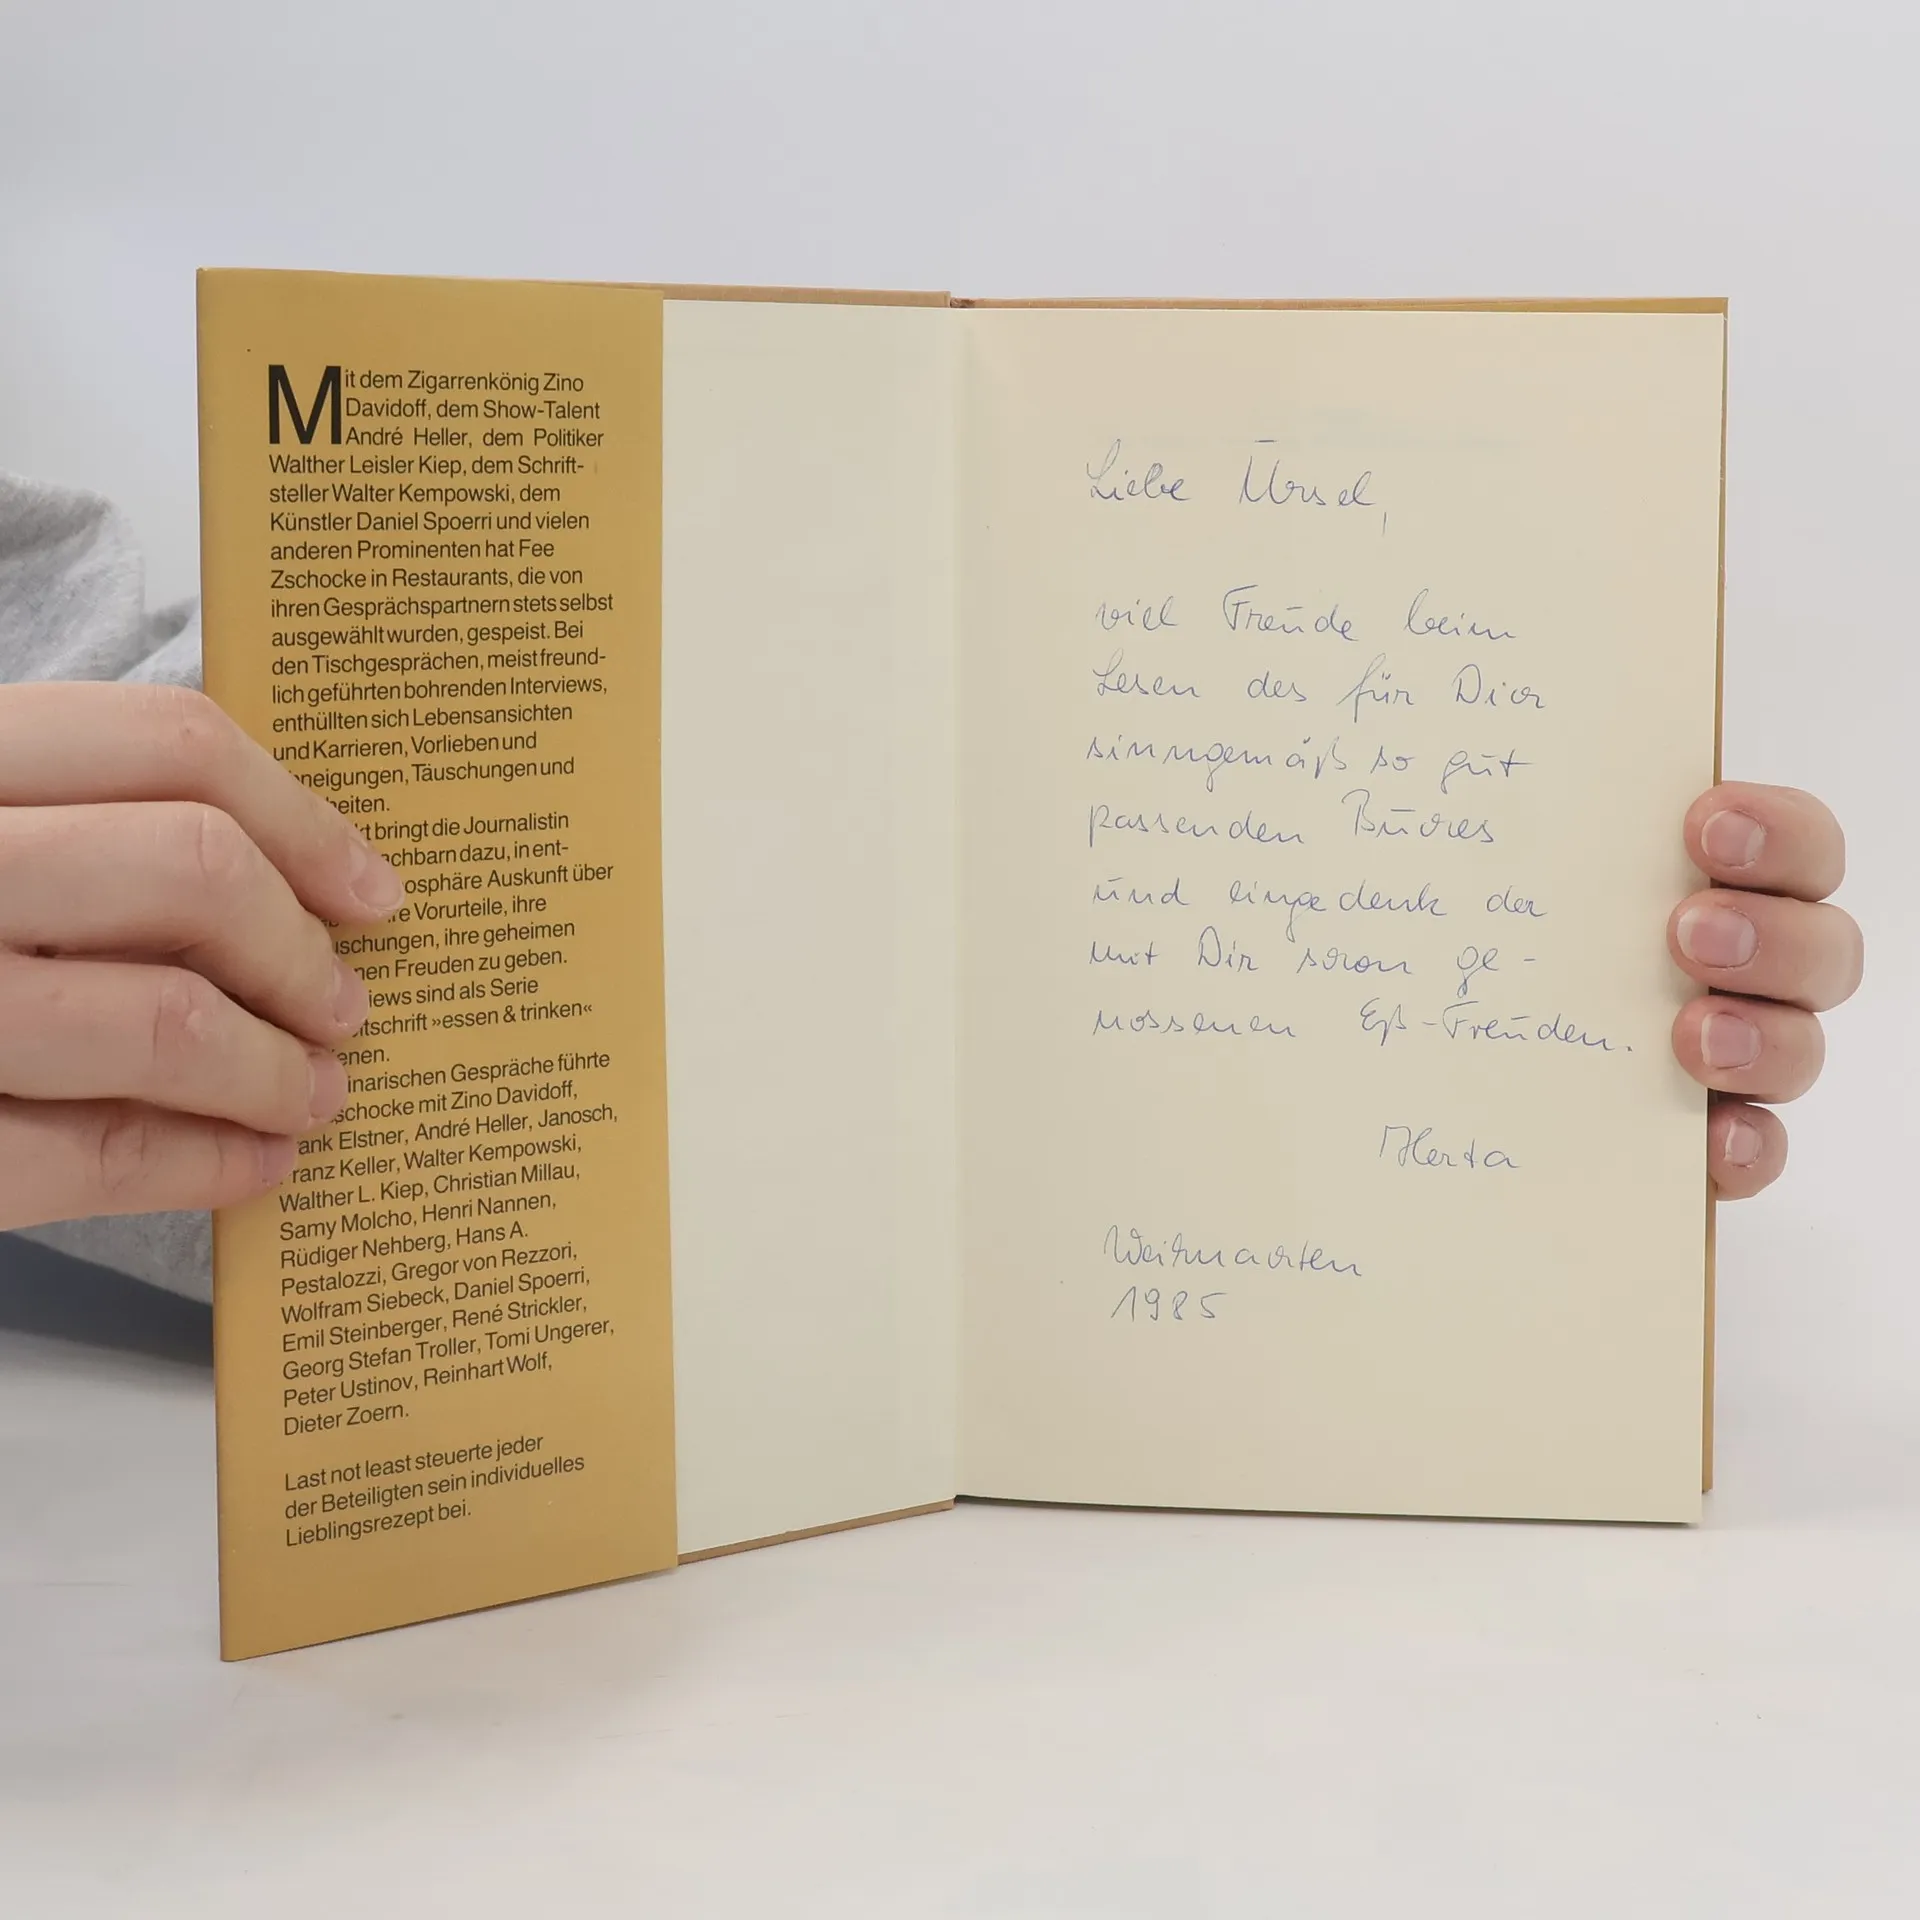 Mit dem Zigarrenkönig Zino
Davidoff, dem Show-Talent
André Heller, dem Politiker
Walther Leisler Kiep, dem Schrift-
steller Walter Kempowski, dem
Künstler Daniel Spoerri und vielen
anderen Prominenten hat Fee
Zschocke in Restaurants, die von
ihren Gesprächspartnern stets selbst
ausgewählt wurden, gespeist. Bei
den Tischgesprächen, meist freund-
lich geführten bohrenden Interviews,
enthüllten sich Lebensansichten
und Karrieren, Vorlieben und
neigungen, Täuschungen und
heiten.
kt bringt die Journalistin
achbarn dazu, in ent-
osphäre Auskunft über
re Vorurteile, ihre
uschungen, ihre geheimen
nen Freuden zu geben.
iews sind als Serie
itschrift »essen & trinken«
enen.
inarischen Gespräche führte
schocke mit Zino Davidoff,
ank Elstner, André Heller, Janosch,
ranz Keller, Walter Kempowski,
Walther L. Kiep, Christian Millau,
Samy Molcho, Henri Nannen,
Rüdiger Nehberg, Hans A.
Pestalozzi, Gregor von Rezzori,
Wolfram Siebeck, Daniel Spoerri,
Emil Steinberger, René Strickler,
Georg Stefan Troller, Tomi Ungerer,
Peter Ustinov, Reinhart Wolf,
Dieter Zoern.
Last not least steuerte jeder
der Beteiligten sein individuelles
Lieblingsrezept bei.
Liebe Ursel,
viel Freude beim
Lesen des für Dich
sinngemäß so gut
passenden Buches
und eingedenk der
mit Dir schon ge-
nossenen Eß-Freuden.
Herta
Weihnachten
1985